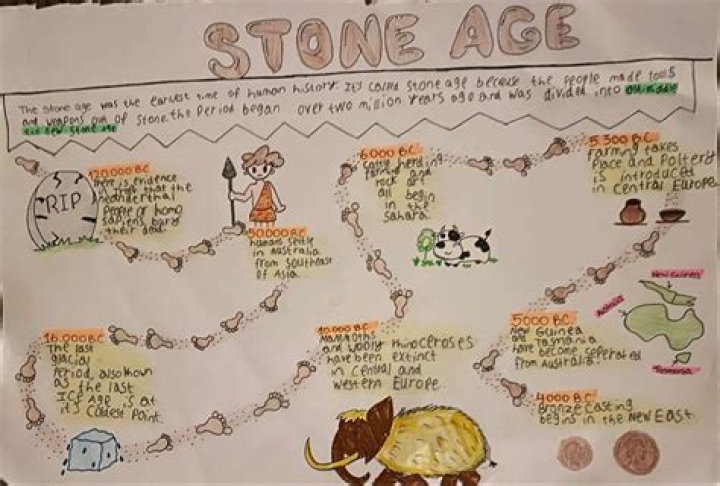 STONE AGE
The stone age was the earliest time of human history. It's called stone age because the people made tools
and weapons out of stone. the Period began over two million years ago and was divided into old, middle
and new stone age
120.000 BC
There is evidence
in that the
neanderthal
People or homo
sapiens bury
their dead.
RIP
50000 BC
humans settle
in Australia
from southeast
Of Asia.
16.000 BC
The last
glacial
period, also known
as the last
ICE Age is at
its Coldest Point.
10.000 BC
Mammoths
and wooly rhinoceroses
have been extinct
in Central and
western Europe.
6000 BC
Cattle herding
farming and
rock art
all begin
in the
Sahara.
5.300 BC
Farming takes
Place and Pottery
is introduced
in Central Europe
5000 BC
New Guinea
and Tasmania
have become seperated
from Australia.
New Guinea
Australia
Tasmania
4000 BC
Bronze Casting
begins in the New East.